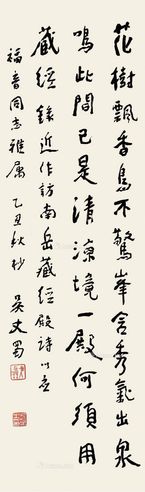 花樹飄香鳥不驚峯含秀氣出泉
鳴此間已是清涼境一殿何須用
藏經錄近作訪南岳藏經殿詩以應
福音同志雅屬 乙丑秋杪 吳丈蜀